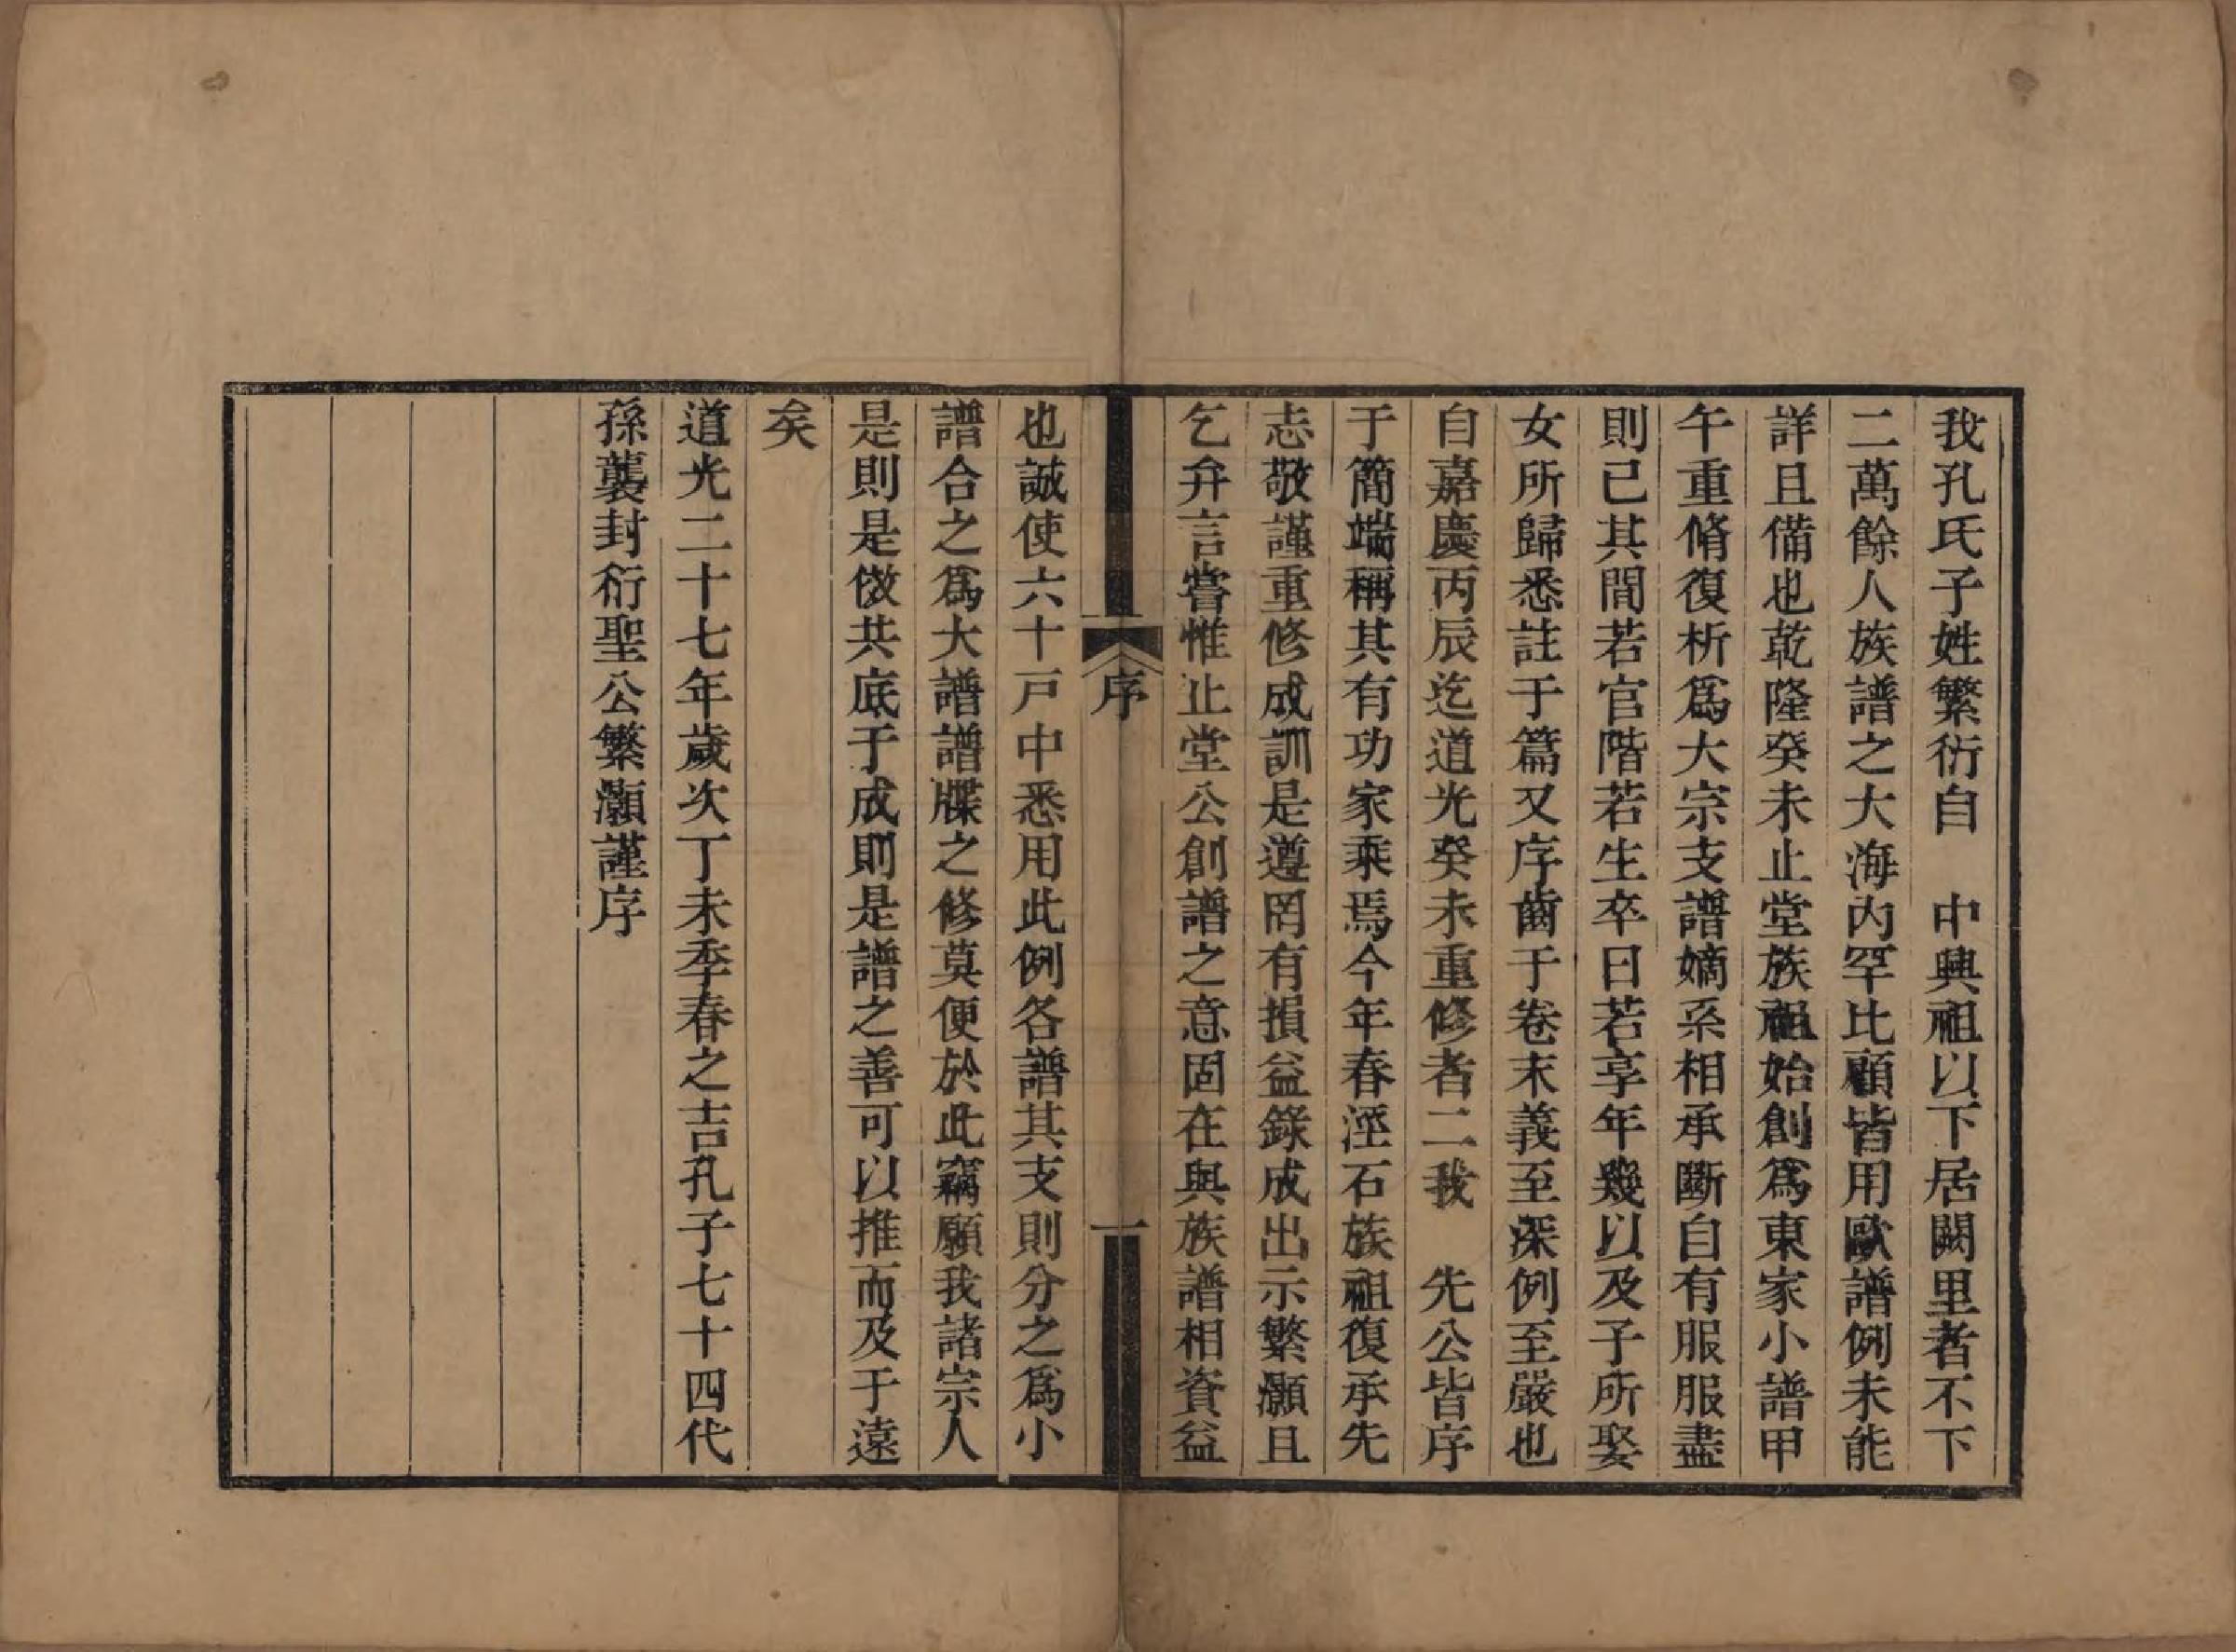 我孔氏子姓繁衍自　中興祖以下居闕里者不下
二萬餘人族譜之大海內罕比顧皆用歐譜例未能
詳且備也乾隆癸未止堂族祖始創爲東家小譜甲
午重脩復析爲大宗支譜嫡系相承斷自有服服盡
則已其間若官階若生卒日若享年幾以及子所娶
女所歸悉註于篇又序齒于卷末義至深例至嚴也
自嘉慶丙辰迄道光癸未重修者二我　先公皆序
于簡端稱其有功家乘焉今年春溼石族祖復承先
志敬謹重修成訓是遵罔有損益錄成出示繁灝且
乞弁言嘗惟止堂公創譜之意固在與族譜相資益
序
一
也誠使六十戸中悉用此例各譜其支則分之爲小
譜合之爲大譜譜牒之修莫便於此竊願我諸宗人
是則是傚共底于成則是譜之善可以推而及于遠
矣
道光二十七年歲次丁未季春之吉孔子七十四代
孫襲封衍聖公繁灝謹序